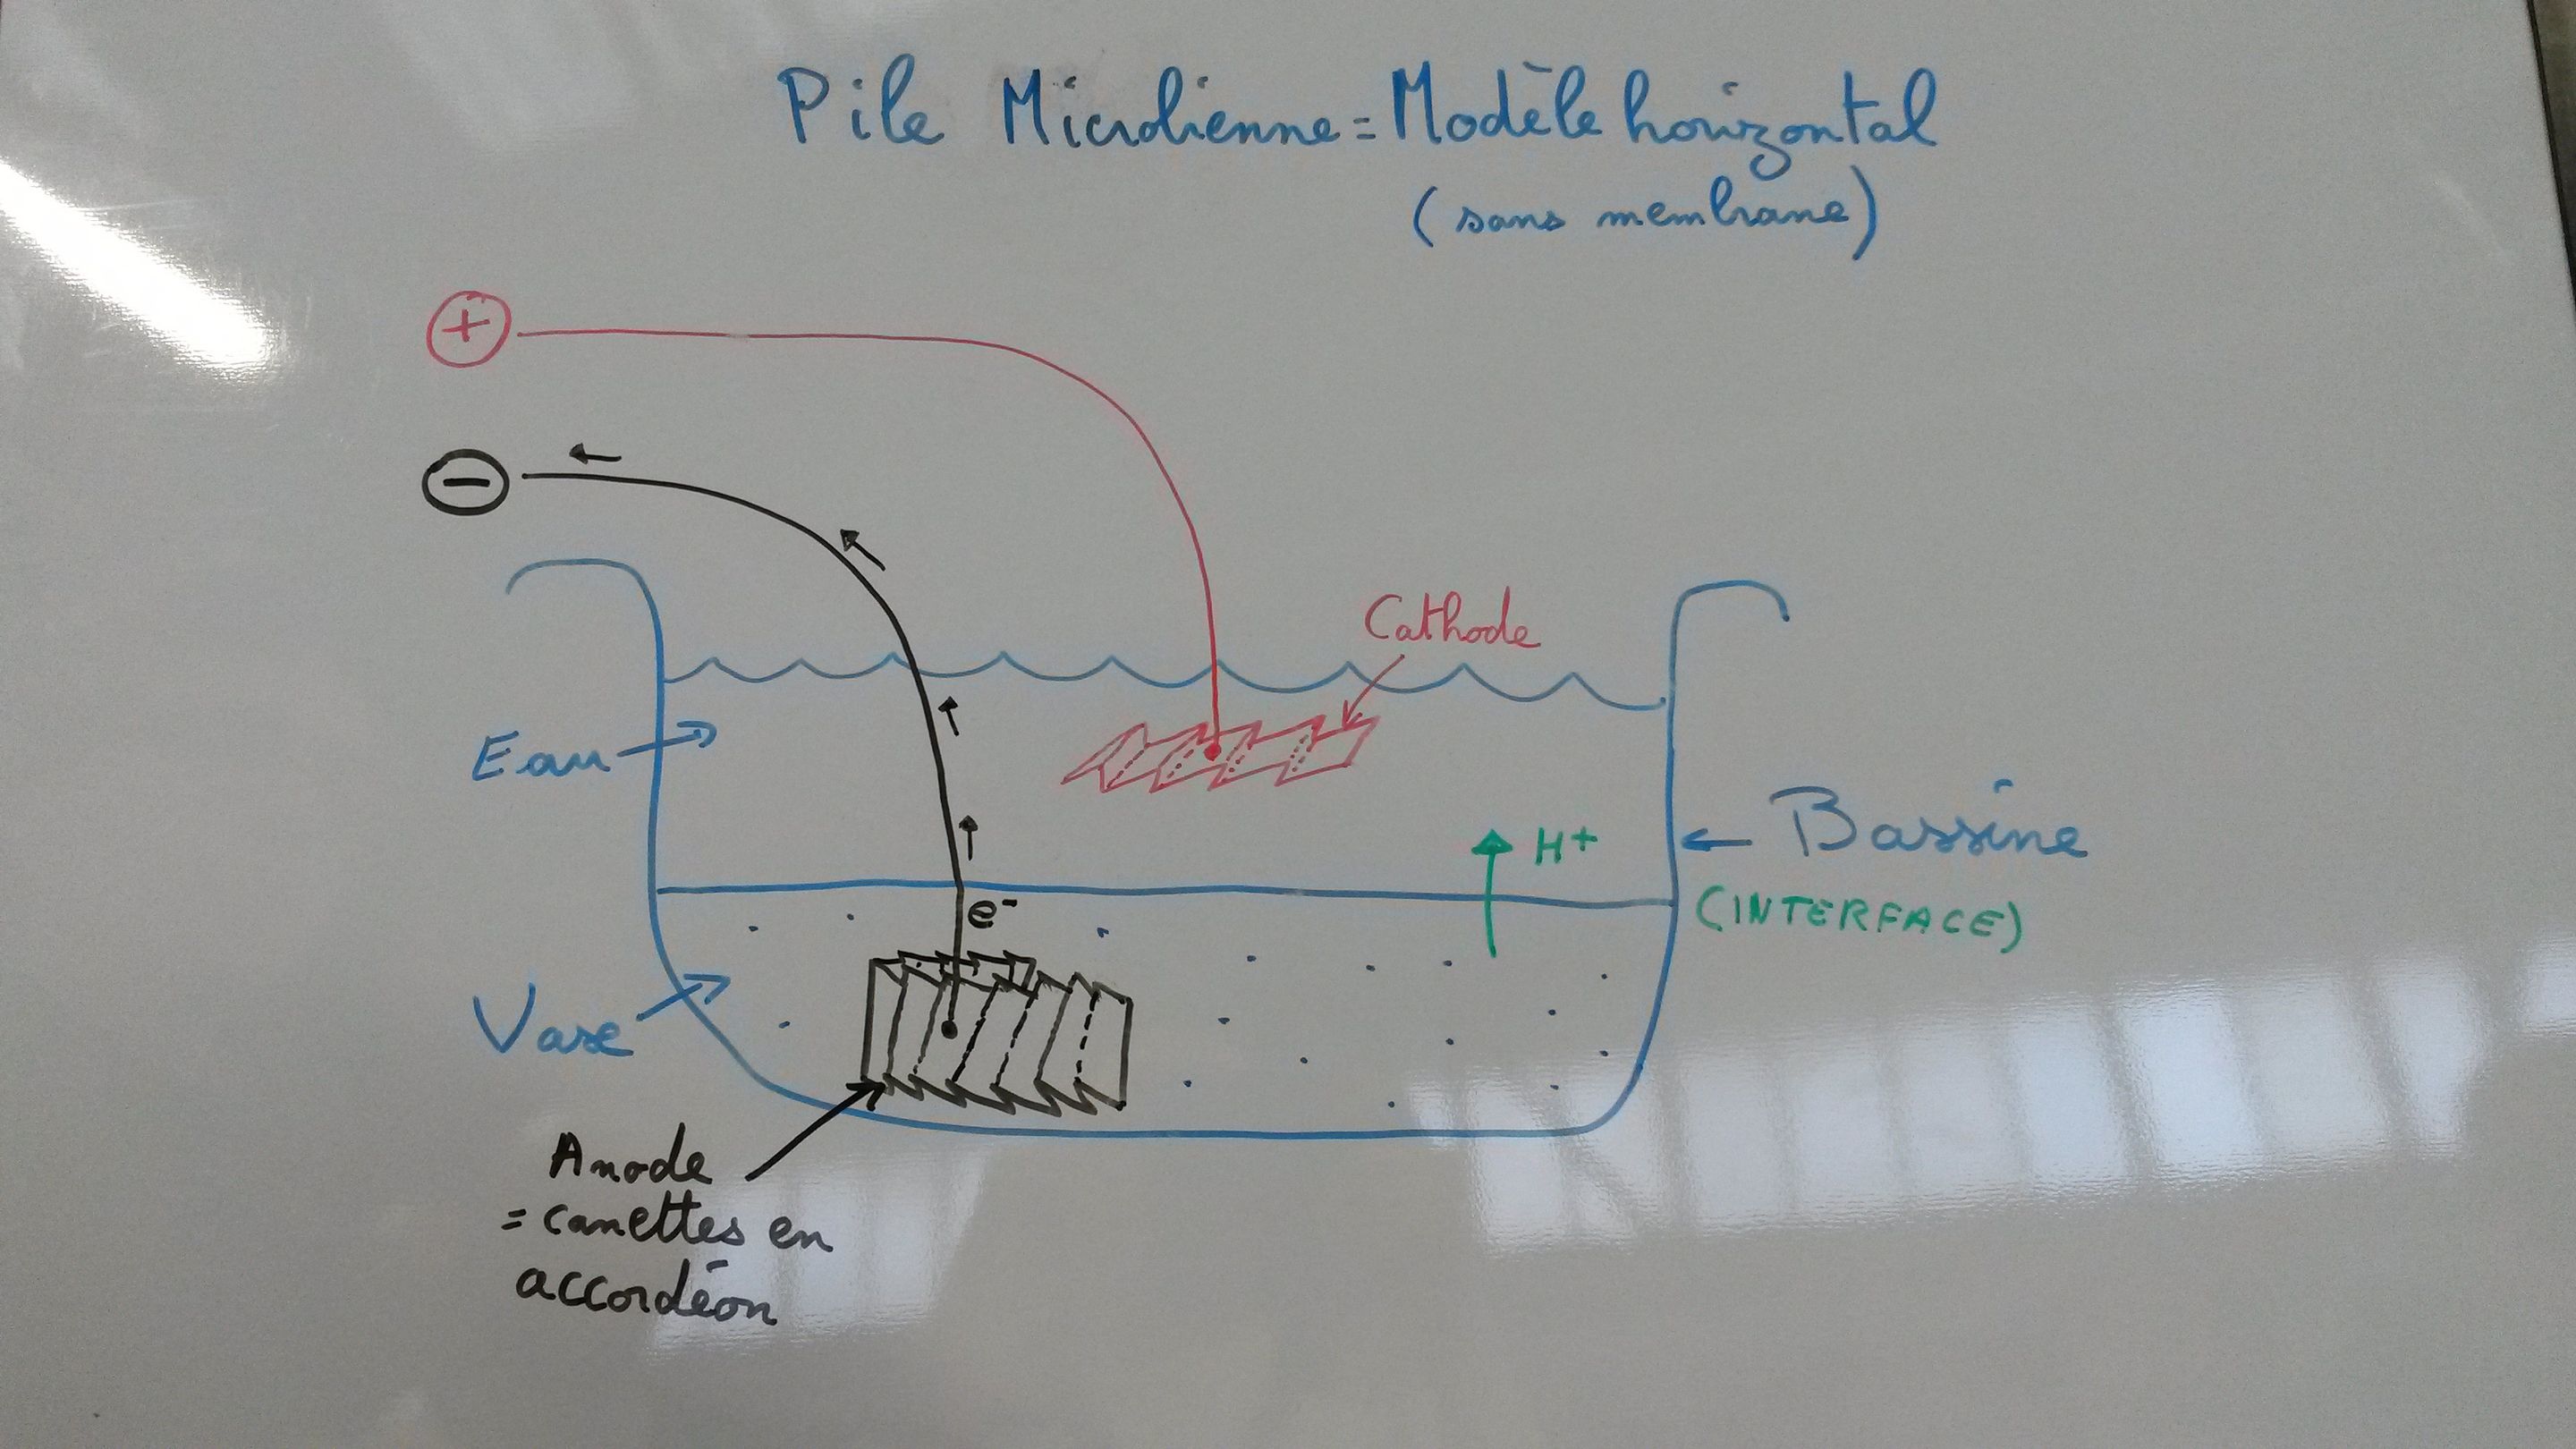 Pile Microbienne = Modèle horizontal
(sans membrane)
+
-
Cathode
Eau
H+
Bassine
(INTERFACE)
e-
Vase
Anode
= canettes en
accordéon